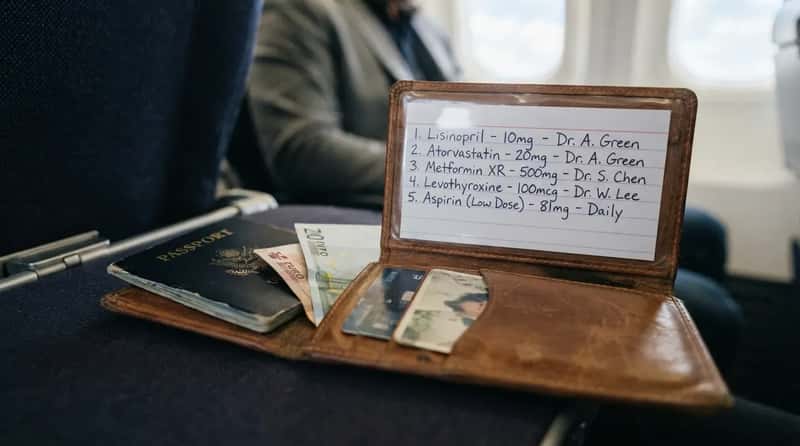 1. Lisinopril - 10mg - Dr. A. Green
2. Atorvastatin - 20mg - Dr. A. Green
3. Metformin XR - 500mg - Dr. S. Chen
4. Levothyroxine - 100mcg - Dr. W. Lee
5. Aspirin (Low Dose) - 81mg - Daily
PASSPORT
20 EURO
EURO